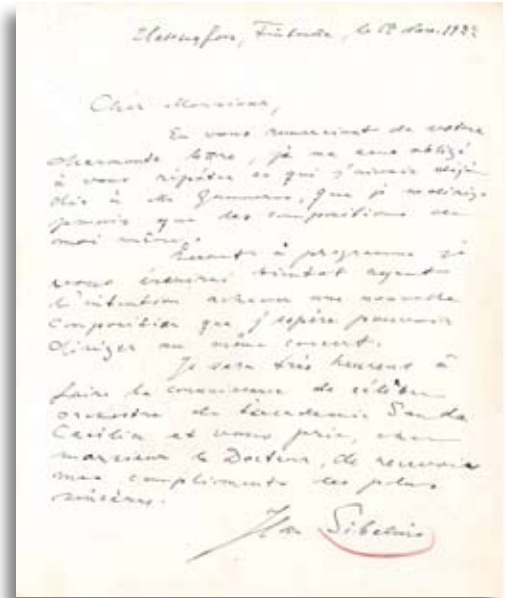 Helsingfors, Finlande, le 12 Nov. 1922
Cher Monsieur,
En vous remerciant de votre
charmante lettre, je me sens obligé
à vous répéter ce qui j'avais déjà
dit à Mr , que je dirige
jamais que des compositions de
moi même.
Quant à programme je
vous bientot ayant
l'intention une nouvelle
composition que j'espère pouvoir
diriger au même concert.
Je sera très heureux à
faire la connaissance de célèbre
orchestre de l'academie Santa
Cecilia et vous prie, cher
monsieur le Docteur, de recevoir
mes compliments les plus
sincères.
Jean Sibelius